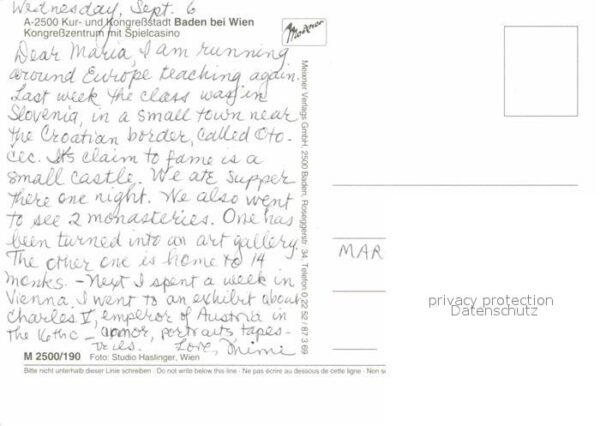 Wednesday, Sept. 6
A-2500 Kur- und Kongreßstadt Baden bei Wien
Kongreßzentrum mit Spielcasino
Meixner
Dear Maria, I am running
around Europe teaching again.
Last week the class was in
Slovenia, in a small town near
the Croatian border, called Oto-
cec. Its claim to fame is a
small castle. We ate supper
there one night. We also went
to see 2 monasteries. One has
been turned into an art gallery.
The other one is home to 14
monks. – Next I spent a week in
Vienna. I went to an exhibit about
Charles V, emperor of Austria in
the 16th c – armor, portraits, tapes-
tries. Love, Mimi
M 2500/190 Foto: Studio Haslinger, Wien
Bitte nicht unterhalb dieser Linie schreiben · Do not write below this line · Ne pas écrire au dessous de cette ligne · Non s
Meixner Verlags GmbH, 2500 Baden, Roseggerstr. 34, Telefon 0 22 52 / 87 3 69
MAR
privacy protection
Datenschutz